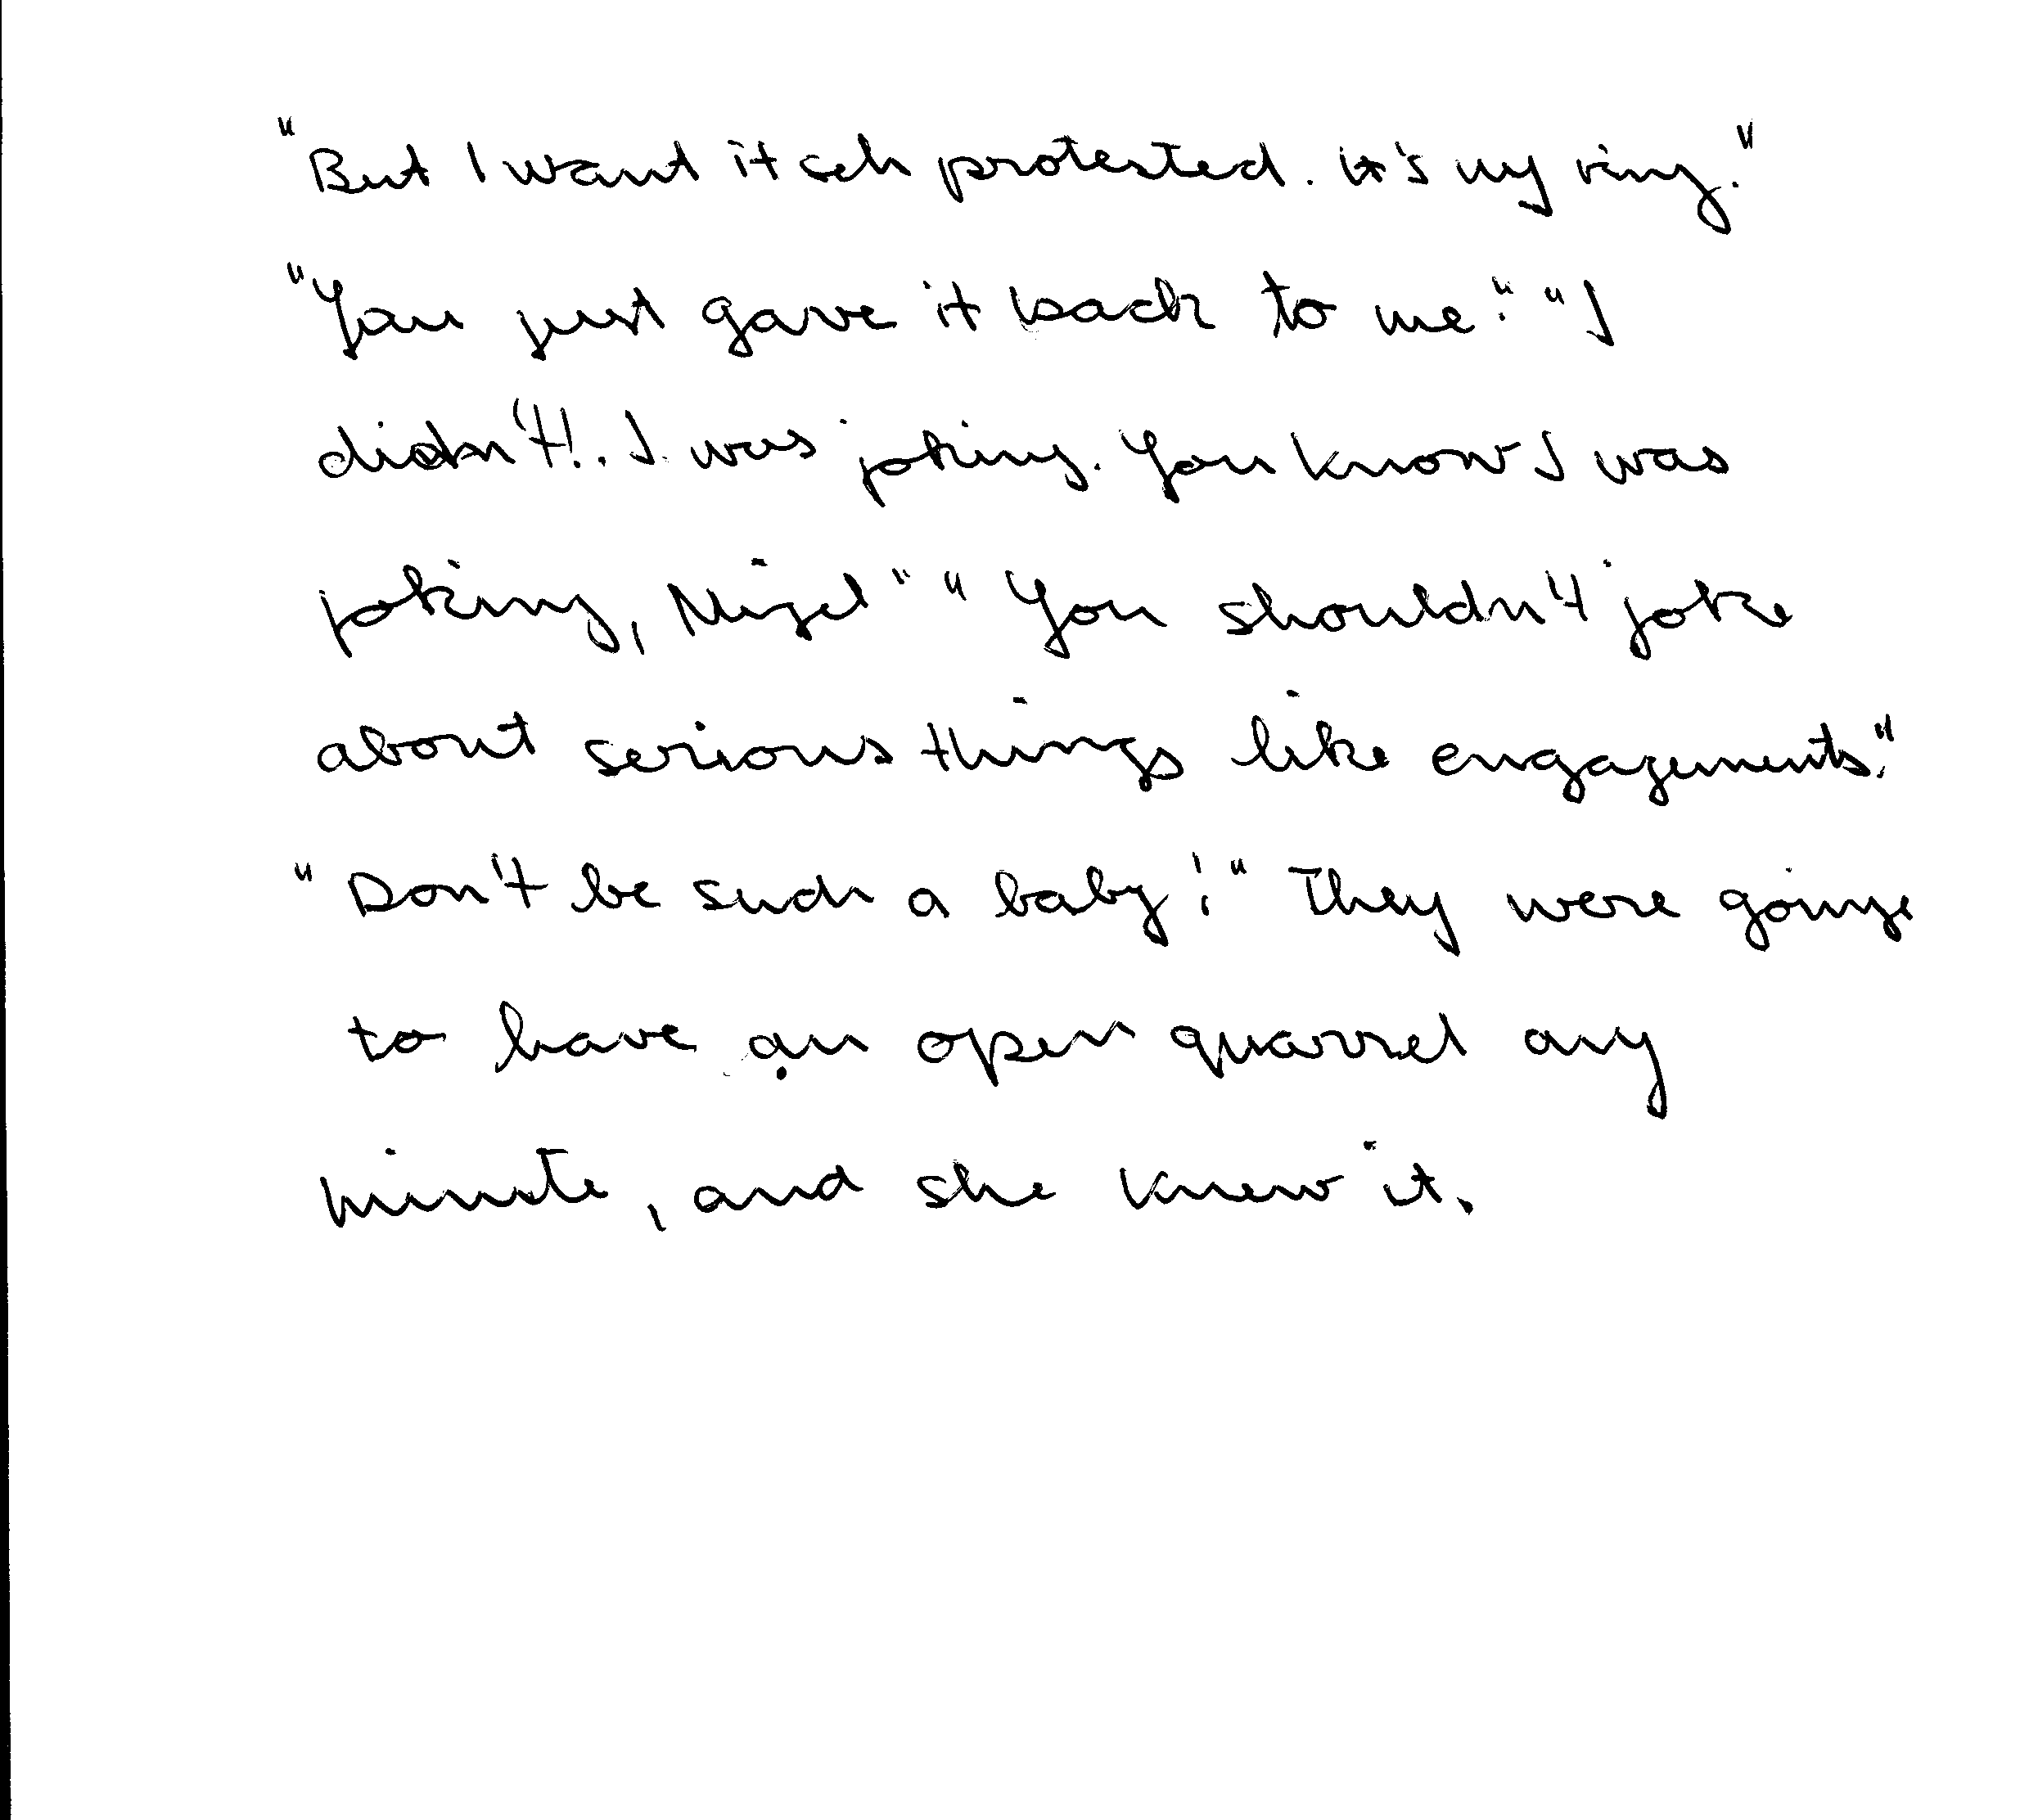 "But I want it seh protested. it's my ring."
"You just gave it back to me." "I
didn't!. I was joking. You know I was
joking, Nigel" "You shouldn't joke
about serious things like engagements."
"Don't be such a baby!" They were going
to have an open quarrel any
minute, and she knew it.